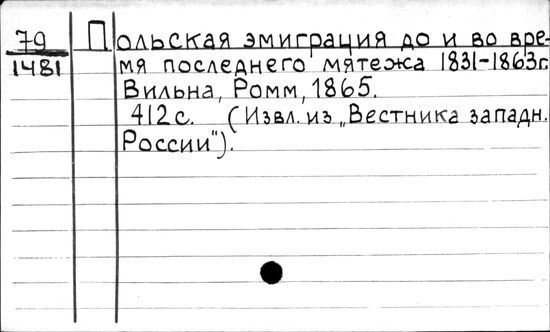 79 Польская эмиграция до и во вре-
1481 мя последнего мятежа 1831-1863г.
Вильна, Ромм, 1865.
412с. (Извл. из „Вестника западн.
России").